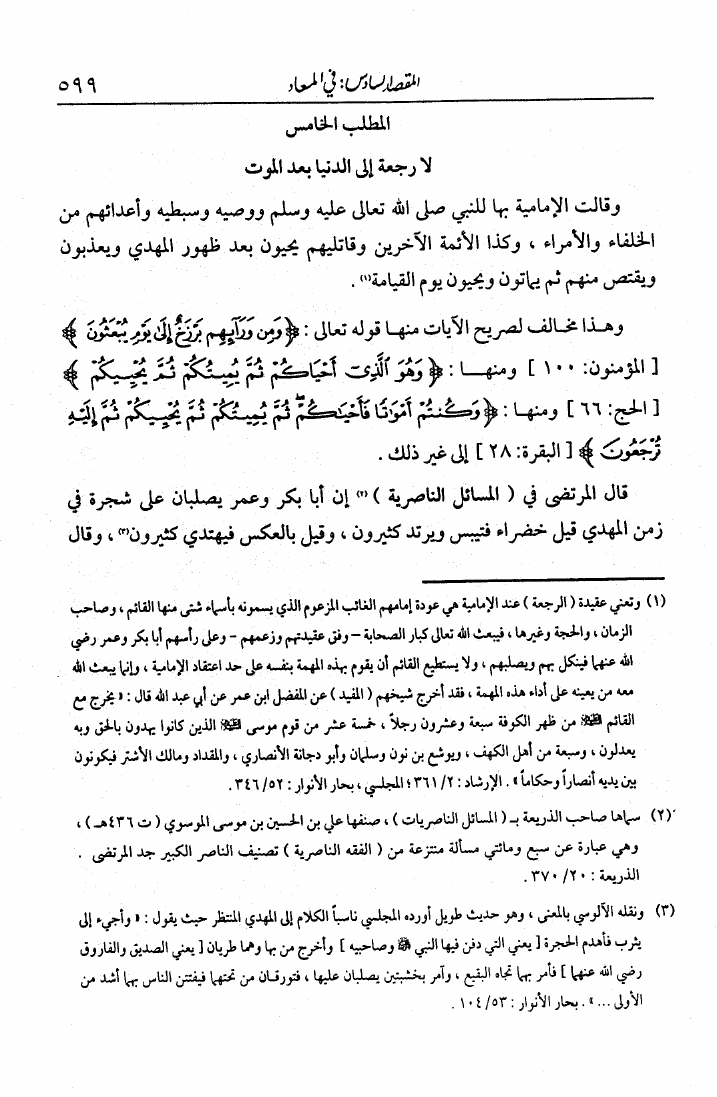 المقصد السادس: في المعاد ٥٩٩
المطلب الخامس
لا رجعة إلى الدنيا بعد الموت
وقالت الإمامية بها للنبي صلى الله تعالى عليه وسلم ووصيه وسبطيه وأعدائهم من
الخلفاء والأمراء ، وكذا الأئمة الآخرين وقاتليهم يحيون بعد ظهور المهدي ويعذبون
ويقتص منهم ثم يماتون ويحيون يوم القيامة(١) .
وهـذا مخـالف لصريح الآيات منهـا قوله تعالى : ﴿ وَمِن وَرَآئِهِم بَرْزَخٌ إِلَىٰ يَوْمِ يُبْعَثُونَ ﴾
[ المؤمنون: ١٠٠ ] ومنهـا : ﴿ وَهُوَ ٱلَّذِىٓ أَحْيَاكُمْ ثُمَّ يُمِيتُكُمْ ثُمَّ يُحْيِيكُمْ ﴾
[ الحج: ٦٦ ] ومنهـا : ﴿ وَكُنتُمْ أَمْوَٰتًا فَأَحْيَـٰكُمْ ۖ ثُمَّ يُمِيتُكُمْ ثُمَّ يُحْيِيكُمْ ثُمَّ إِلَيْهِ
تُرْجَعُونَ ﴾ [ البقرة: ٢٨ ] إلى غير ذلك .
قال المرتضى في ( المسائل الناصرية )(٢) إن أبا بكر وعمر يصلبان على شجرة في
زمن المهدي قيل خضراء فتيبس ويرتد كثيرون ، وقيل بالعكس فيهتدي كثيرون(٣) ، وقال
(١) وتعني عقيدة ( الرجعة ) عند الإمامية هي عودة إمامهم الغائب المزعوم الذي يسمونه بأسماء شتى منها القائم ، وصاحب
الزمان ، والحجة وغيرها ، فيبعث الله تعالى كبار الصحابة – وفق عقيدتهم وزعمهم – وعلى رأسهم أبا بكر وعمر رضي
الله عنهما فينكل بهم ويصلبهم ، ولا يستطيع القائم أن يقوم بهذه المهمة بنفسه على حد اعتقاد الإمامية ، وإنما يبعث الله
معه من يعينه على أداء هذه المهمة ، فقد أخرج شيخهم ( المفيد ) عن المفضل ابن عمر عن أبي عبد الله قال : « يخرج مع
القائم ﷺ من ظهر الكوفة سبعة وعشرون رجلاً ، خمسة عشر من قوم موسى ﷺ الذين كانوا يهدون بالحق وبه
يعدلون ، وسبعة من أهل الكهف ، ويوشع بن نون وسلمان وأبو دجانة الأنصاري ، والمقداد ومالك الأشتر فيكونون
بين يديه أنصاراً وحكاماً » . الإرشاد : ٢/ ٣٦١ ؛ المجلسي ، بحار الأنوار : ٥٢/ ٣٤٦ .
(٢) سماها صاحب الذريعة بـ ( المسائل الناصريات ) ، صنفها علي بن الحسين بن موسى الموسوي ( ت ٤٣٦هـ ) ،
وهي عبارة عن سبع ومائتي مسألة منتزعة من ( الفقه الناصرية ) تصنيف الناصر الكبير جد المرتضى .
الذريعة : ٢٠/ ٣٧٠ .
(٣) ونقله الآلوسي بالمعنى ، وهو حديث طويل أورده المجلسي ناسباً الكلام إلى المهدي المنتظر حيث يقول : « وأجيء إلى
يثرب فأهدم الحجرة [ يعني التي دفن فيها النبي ﷺ وصاحبيه ] وأخرج من بها وهما طريان [ يعني الصديق والفاروق
رضي الله عنهما ] فأمر بهما تجاه البقيع ، وآمر بخشبتين يصلبان عليها ، فتورقـان من تحتهما فيفتتن الناس بهما أشد من
الأولى ... » . بحار الأنوار : ٥٣/ ١٠٤ .